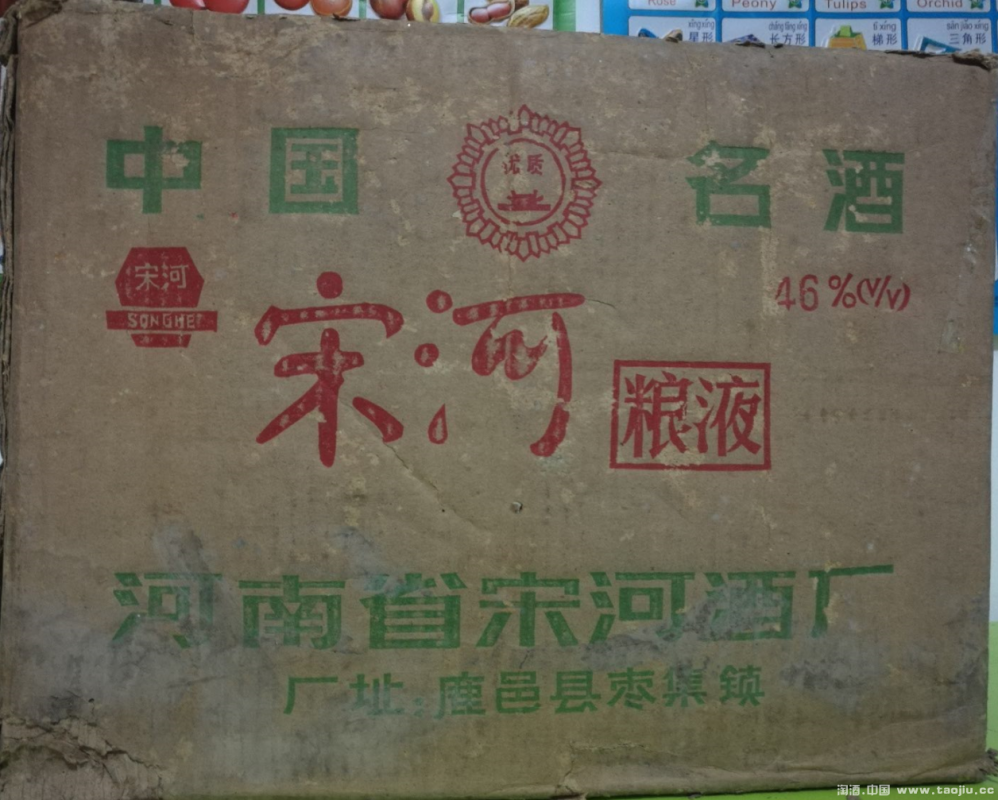 Rose Peony Tulips Orchid
xīng xíng cháng fāng xíng tī xíng sān jiǎo xíng
星形 长方形 梯形 三角形
中国 名酒
优质
宋河
SONGHE
46%(V/V)
宋河
粮液
河南省宋河酒厂
厂址:鹿邑县枣集镇
淘酒.中国 www.taojiu.cc